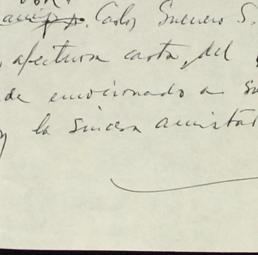 Carlos Guerrero S.
afectuosa carta, del
de emocionado a su
y la sincera amistad